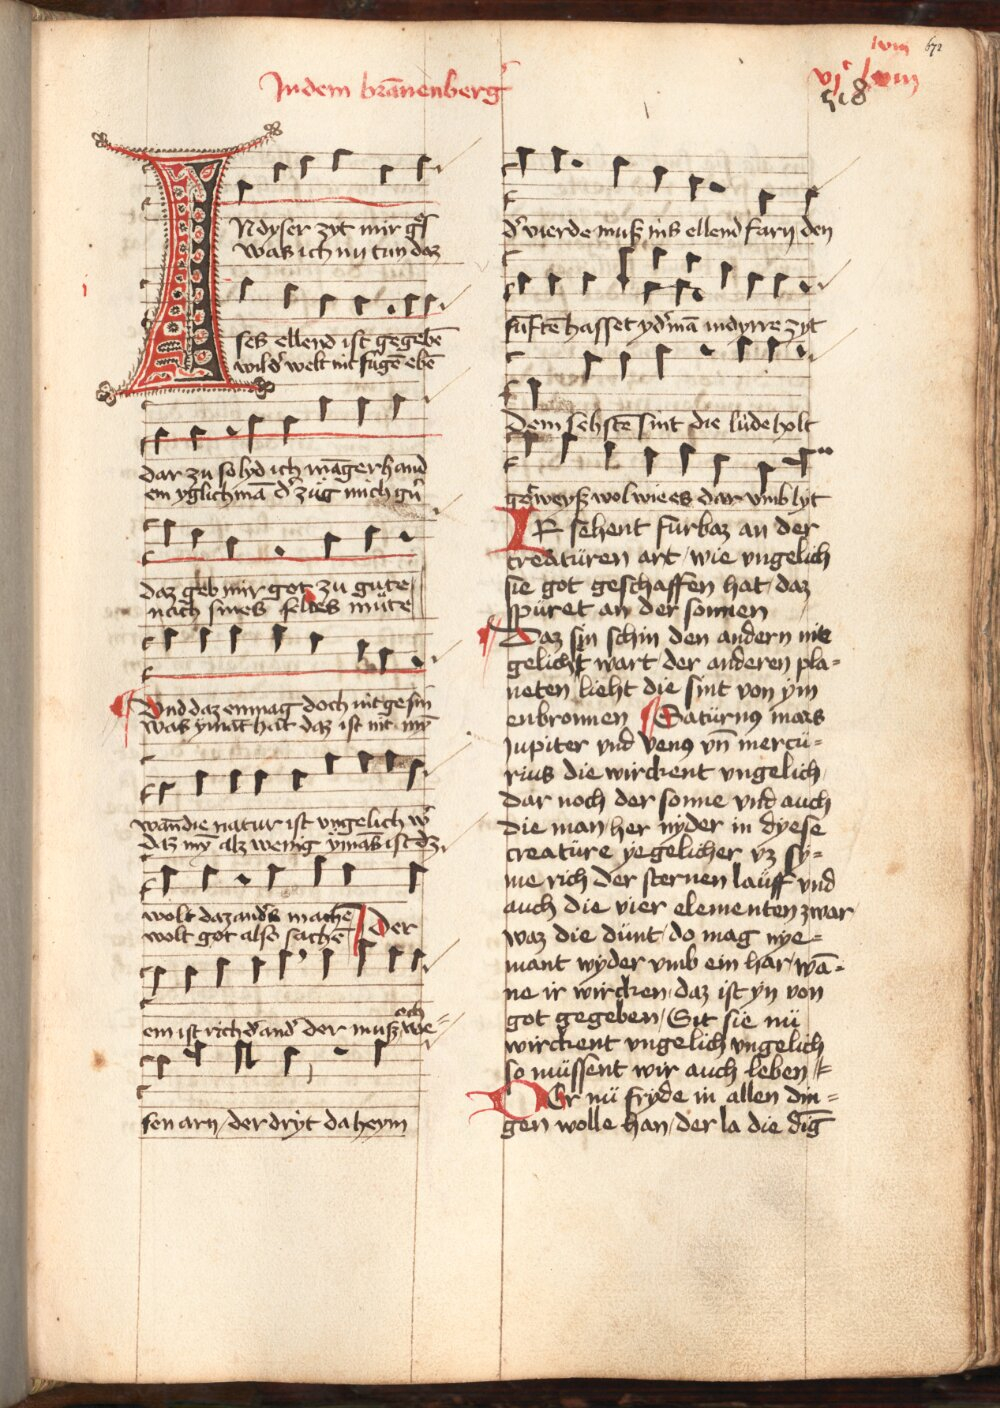 In dem brānenberg
lviii
672
vjᶜ lviii
518
INdyser zyt mir
was ich nu tun daz
ses ellend ist gegebē
wild' welt nit fugē ebē
dar zu so lyd ich māgerhand
ein yglich mā d' zug mich
daz geb mir got zu gute
nach sines seldes müte
Vnd daz enmag doch nit gesin
was ymāt hat daz ist nit
wan die natur ist vngelich
daz my alz wenig ymās ist dz
wolt daz and's machē Der
wolt got also sachē
ein ist rich d' and' der muß och we=
sen arn / der dryt da heym
d' vierde muß ins ellend farn den
funftē hasset yd'mā in dyrre zyt
dem sehstē sint die lüde holt
got weyß wol wie es dar vmb lyt
IR sehent furbaz an der
creatüren art / wie vngelich
sie got geschaffen hat / daz
spüret an der sonnen
Daz sin schin den andern nie
gelicht wart der anderen pla=
neten lieht die sint von ym
enbronnen Satürnꝰ mars
Jupiter vnd venꝰ vn̄ mercü=
rius die wirckent vngelich
dar noch der sonne vnd auch
die man / her nyder in dyese
creatüre yegelicher vz sy=
me rich der sternen lauff vnd
auch die vier elementen zwar
waz die dünt / do mag nye=
mant wyder vmb ein har / wā=
ne ir wircken / daz ist yn von
got gegeben / Sit sie nü
wirckent vngelich vngelich
so müssent wir auch leben
Der nü fryde in allen din=
gen wolle han / der la die dīg